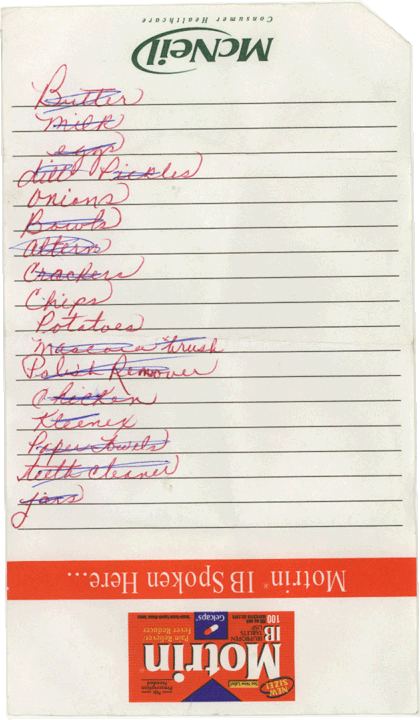 McNeil
Consumer Healthcare
Butter
Milk
eggs
dill Pickles
Onions
Bowls
Crackers
Chips
Potatoes
Mascara brush
Polish Remover
Chicken
Kleenex
Paper Towels
teeth cleaner
jars
Motrin® IB Spoken Here...
NEW SIZE!
See New Label
Motrin
IB
IBUPROFEN
TABLETS
USP
100
Gelcaps®
Pain Reliever/
Fever Reducer